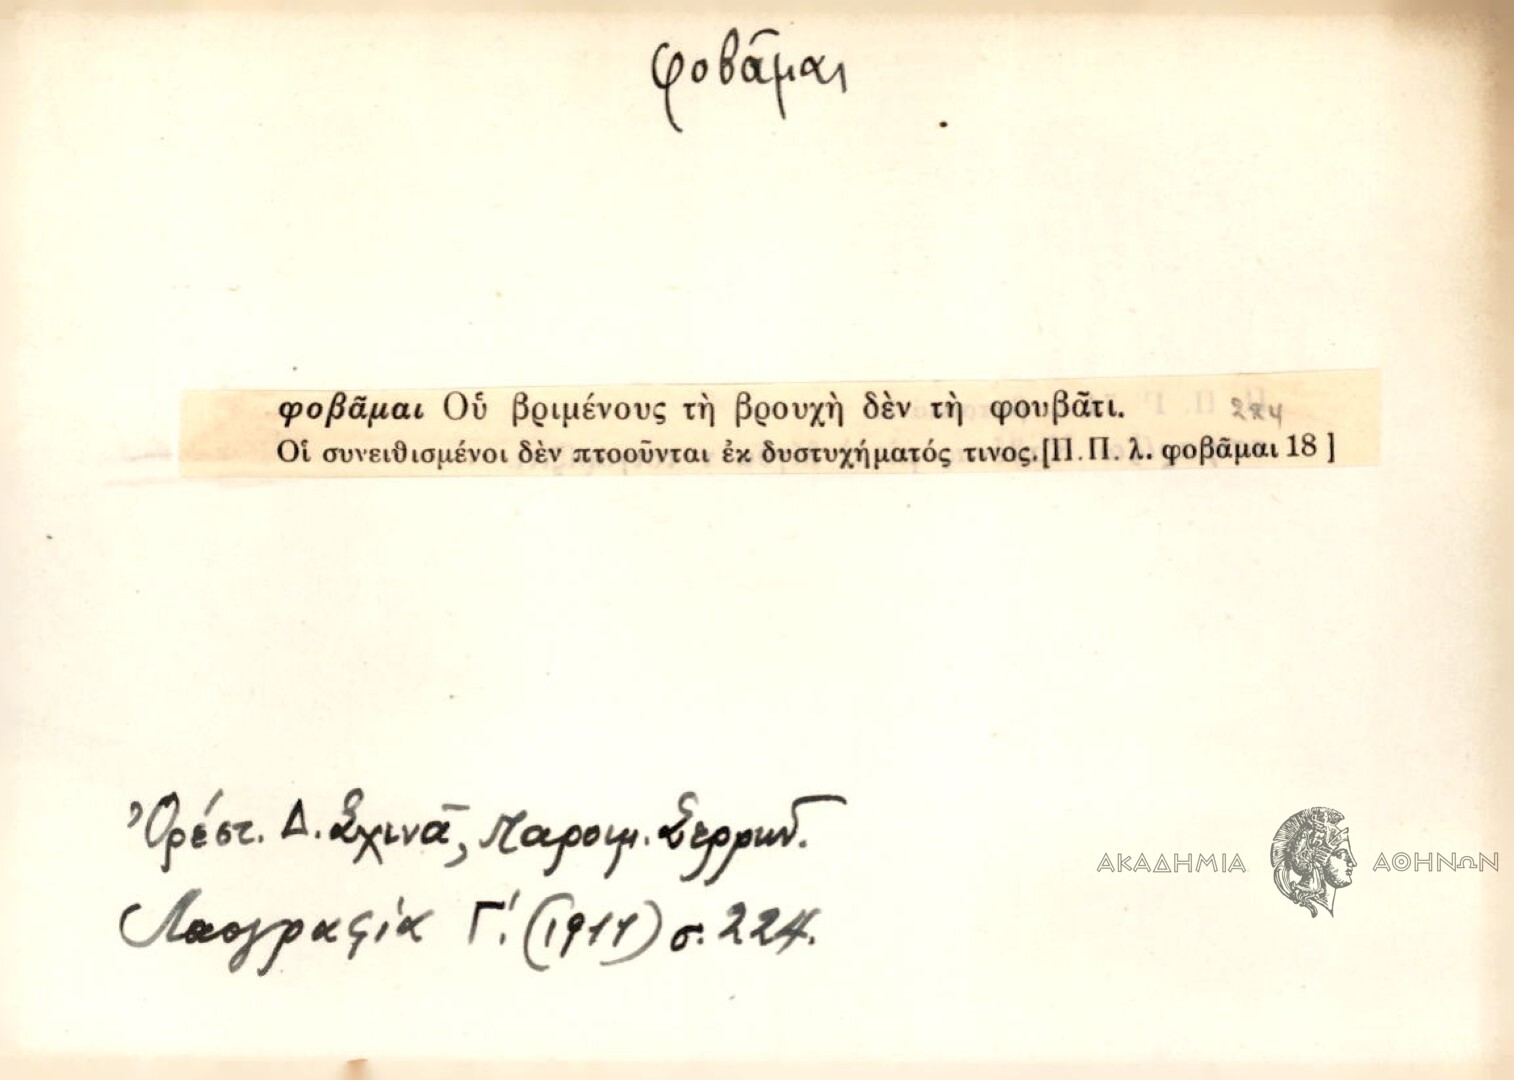 φοβᾶμαι
φοβᾶμαι Οὑ βριμένους τὴ βρουχὴ δὲν τὴ φουβᾶτι. 224
Οἱ συνειθισμένοι δὲν πτοοῦνται ἐκ δυστυχήματός τινος. [Π.Π. λ. φοβᾶμαι 18]
Ὀρέστ. Δ. Σχινᾶ, Παροιμ. Σερρῶν.
Λαογραφία Γ΄. (1911) σ. 224.
ΑΚΑΔΗΜΙΑ ΑΘΗΝΩΝ